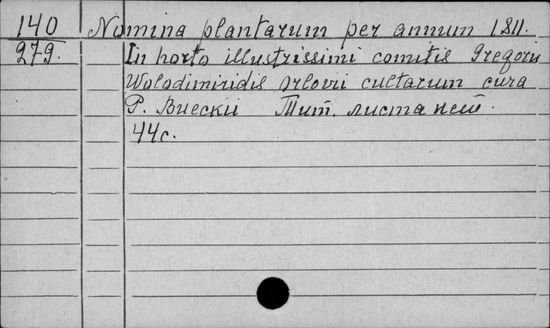 140 Nomina plantarum per annum 1811.
279. In horto illustrissimi comitis Gregorii
Wolodimiridis Orlovii cultarum cura
P. Bueckii Тит. листа нет.
44 с.